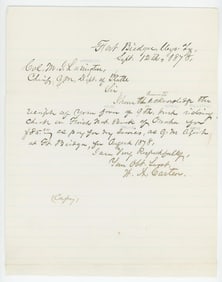 Fort Bridger Wyo. Ty.
Sept. 12th, 1878.
Col. M. I. Ludington,
Chief Q.M. Dept. of Platte
Sir
I have the honor to acknowledge the
receipt of yours from of 9th inst.
Check on First Nat. Bank of Omaha for
as pay for my services, as Q.M. Agent
at Ft. Bridger, for August 1878.
I am Very Respectfully,
Your Obt. Servt.
W. A. Carter.
(Copy)